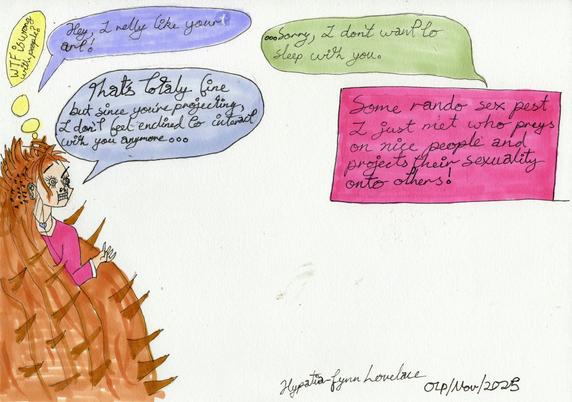 WTF is wrong
with people?
Hey, I relly like your
art!
...Sorry, I don't want to
sleep with you.
That's totaly fine
but since you're projecting,
I don't feel enclined to interact
with you anymore...
Some rando sex pest
I just met who preys
on nice people and
projects their sexuality
onto others!
Hypatia-Lynn Lovelace
/Nov/2025